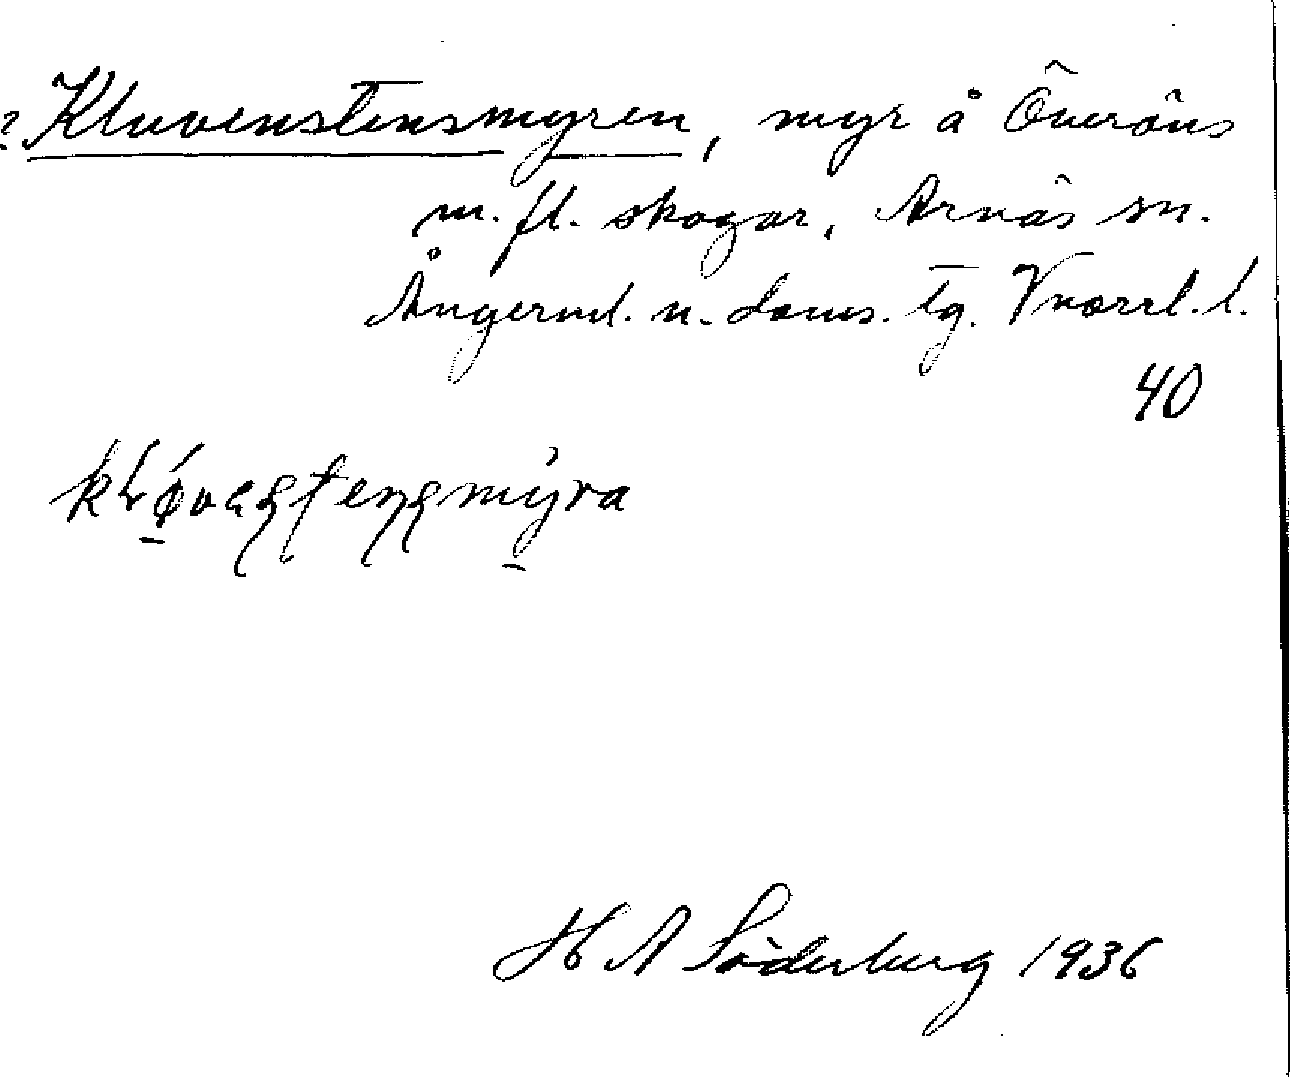 ? Kluvenstensmyren, myr å Överöns
m. fl. skogar, Arnäs sn.
Ångerml. n. doms. tg. Vnorrl. l.
40
H A Söderberg 1936